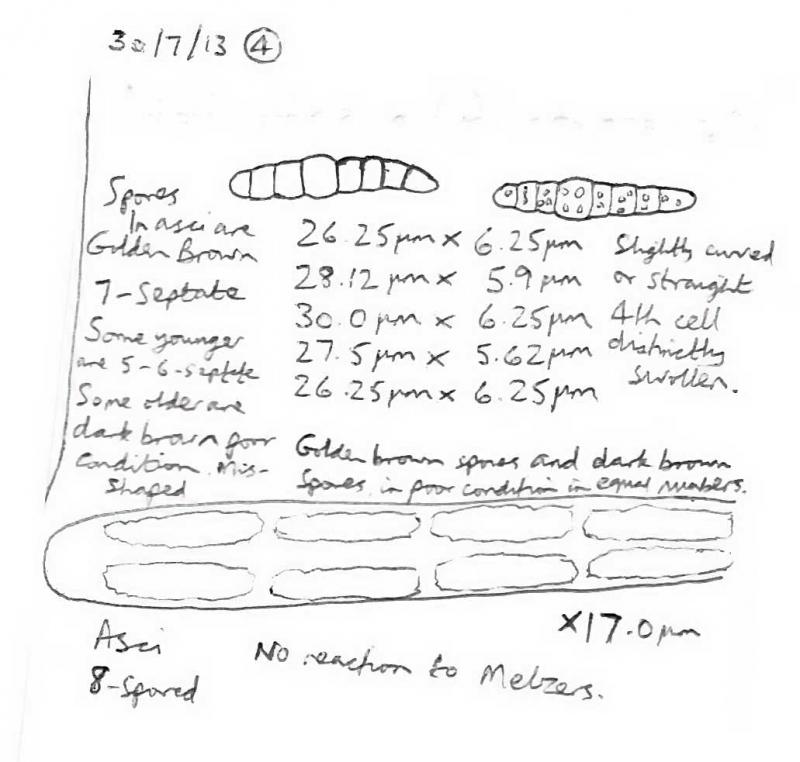 30/7/13 ④
Spores
In asci are
Golden Brown
7-Septate
Some younger
are 5-6-septate
Some older are
dark brown poor
condition. Mis-
shaped
26.25µm x 6.25µm
28.12µm x 5.9µm
30.0µm x 6.25µm
27.5µm x 5.62µm
26.25µm x 6.25µm
Slightly curved
or straight
4th cell
distinctly
swollen.
Golden brown spores and dark brown
spores in poor condition in equal numbers.
x17.0µm
Asci
8-Spored
No reaction to Melzers.